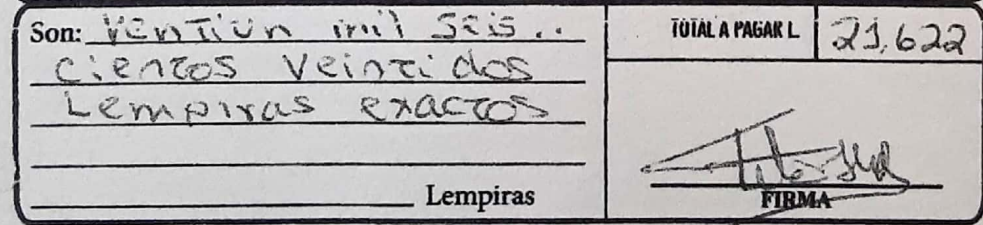 Son: Ventiun mil Seis..
cientos Veintidos
Lempiras exactos
Lempiras
TOTAL A PAGAR L 21,622
FIRMA